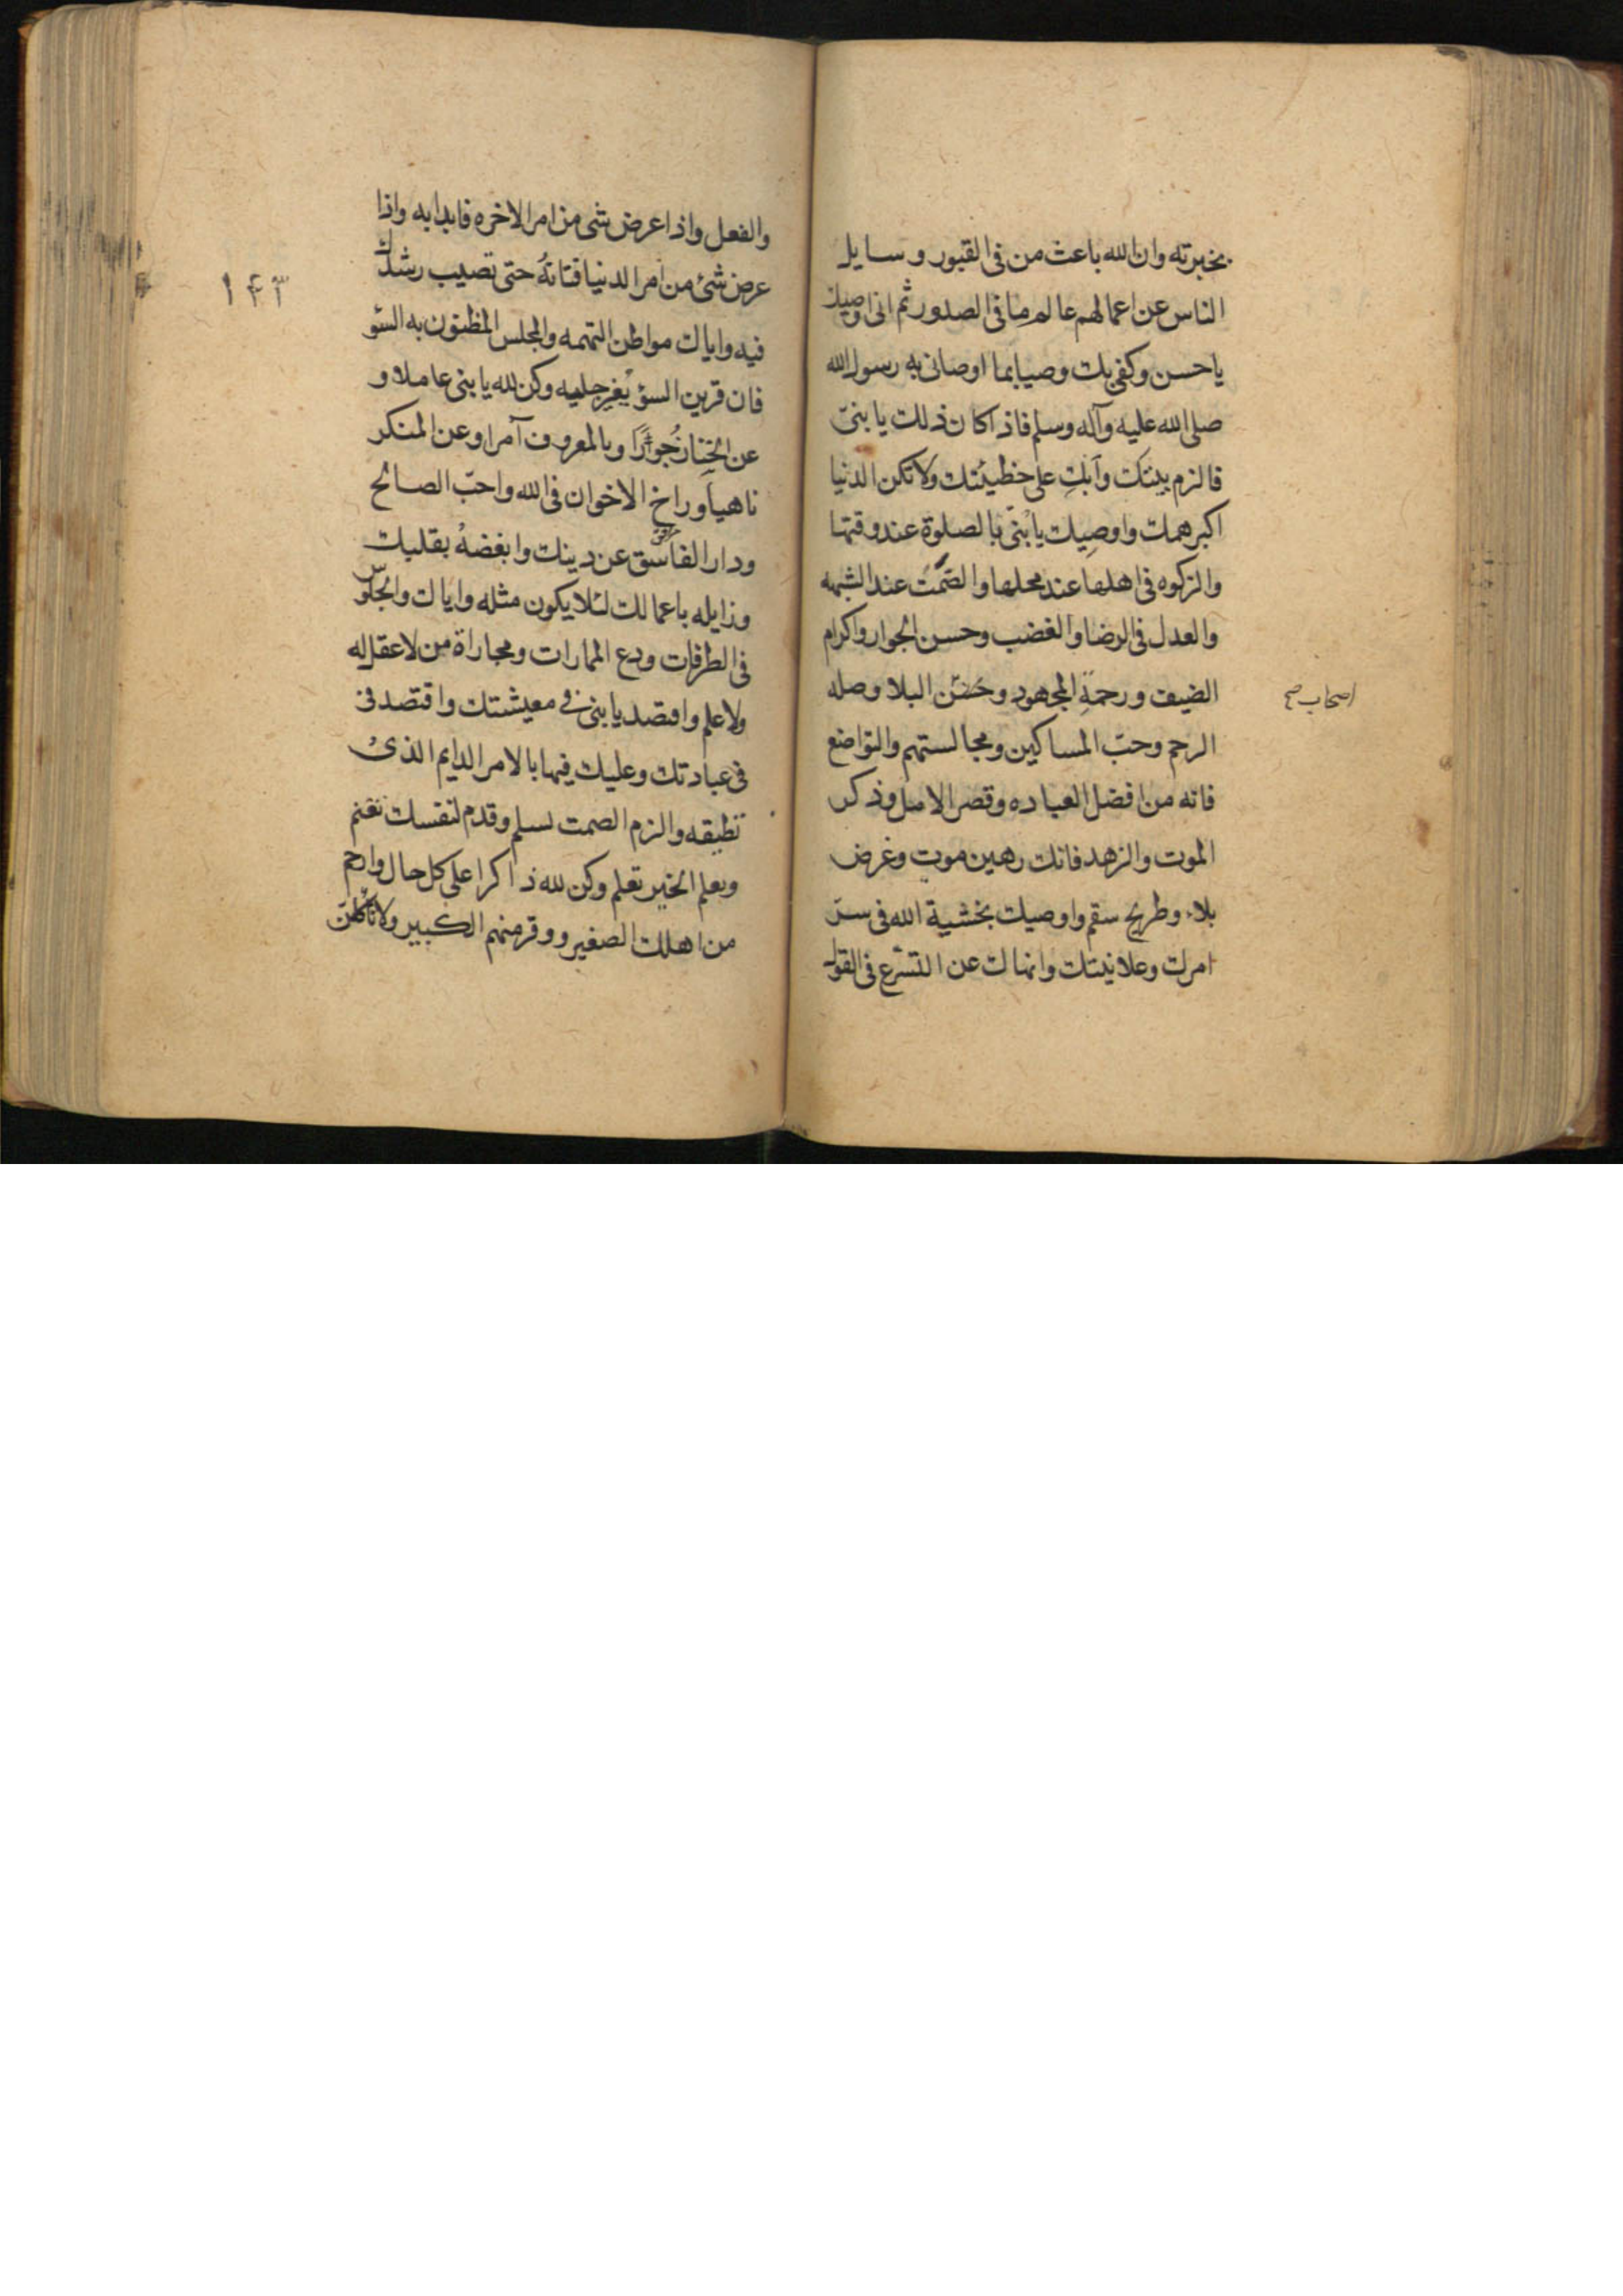 بخيرته وان الله باعث من فى القبور و سايل
الناس عن اعمالهم عالم ما فى الصدور ثم انى اوصيك
ياحسن وكفى بك وصيا بما اوصانى به رسول الله
صلى الله عليه وآله وسلم فاذا كان ذلك يا بنىّ
فالزم بيتك وآبك على خطيئتك ولا تكن الدنيا
اكبر همك واوصيك يا بنىّ بالصلوة عند وقتها
والزكوه فى اهلها عند محلها والصّمت عند الشبهه
والعدل فى الرضا والغضب وحسن الجوار واكرام
الضيف ورحمة المجهود و البلا وصله
اصحاب صح
الرحم وحبّ المساكين ومجالستهم والتواضع
فانه من افضل العباده وقصر الامل وذكر
الموت والزهد فانك رهين موت وغرض
بلاء وطريح سقم واوصيك بخشية الله فى سرّ
امرك وعلانيتك وانهاك عن التسرّع فى القول
١۴٣
والفعل واذا عرض شى من امر الاخره فابدا به واذا
عرض شئ من امر الدنيا فتانهُ حتى تصيب رشدك
فيه واياك مواطن التهمه والمجلس المظنون به السّو
فان قرين السؤ يُغير جليسه وكن لله يا بنى عاملا و
عن الخنا زُجورًا وبالمعروف آمرا وعن المنكر
ناهيا وراخ الاخوان فى الله واحبّ الصالح
ودار الفاسق عن دينك وابغضهُ بقلبك
وزايله باعمالك لئلا يكون مثله واياك والجلوس
فى الطرقات ودع الممارات ومجاراة من لا عقل له
ولا علم واقتصد يا بنى فى معيشتك واقتصد فى
فى عبادتك وعليك فيها بالامر الدايم الذى
تطيقه والزم الصمت تسلم وقدم لنفسك تغنم
وتعلم الخير تعلم وكن لله ذاكرا على كل حال وارحم
من اهلك الصغير ووقر منهم الكبير ولا تاكلنّ